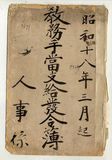 昭和十八年三月起
教務手當支給發令簿
人事係